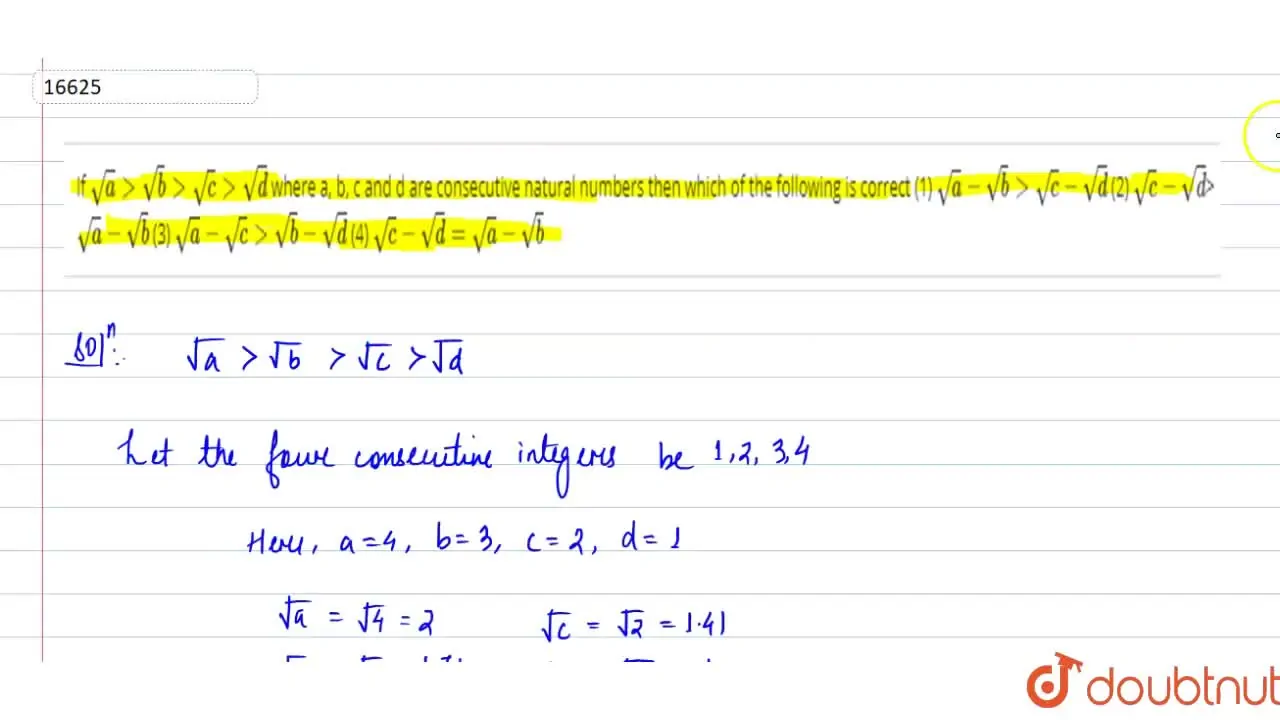 16625
If √a > √b > √c > √d where a, b, c and d are consecutive natural numbers then which of the following is correct (1) √a − √b > √c − √d (2) √c − √d>
√a − √b (3) √a − √c > √b − √d (4) √c − √d = √a − √b
Solⁿ:
√a > √b > √c > √d
Let the four consecutive integers be 1, 2, 3, 4
Here, a = 4, b = 3, c = 2, d = 1
√a = √4 = 2 √c = √2 = 1.41
doubtnut